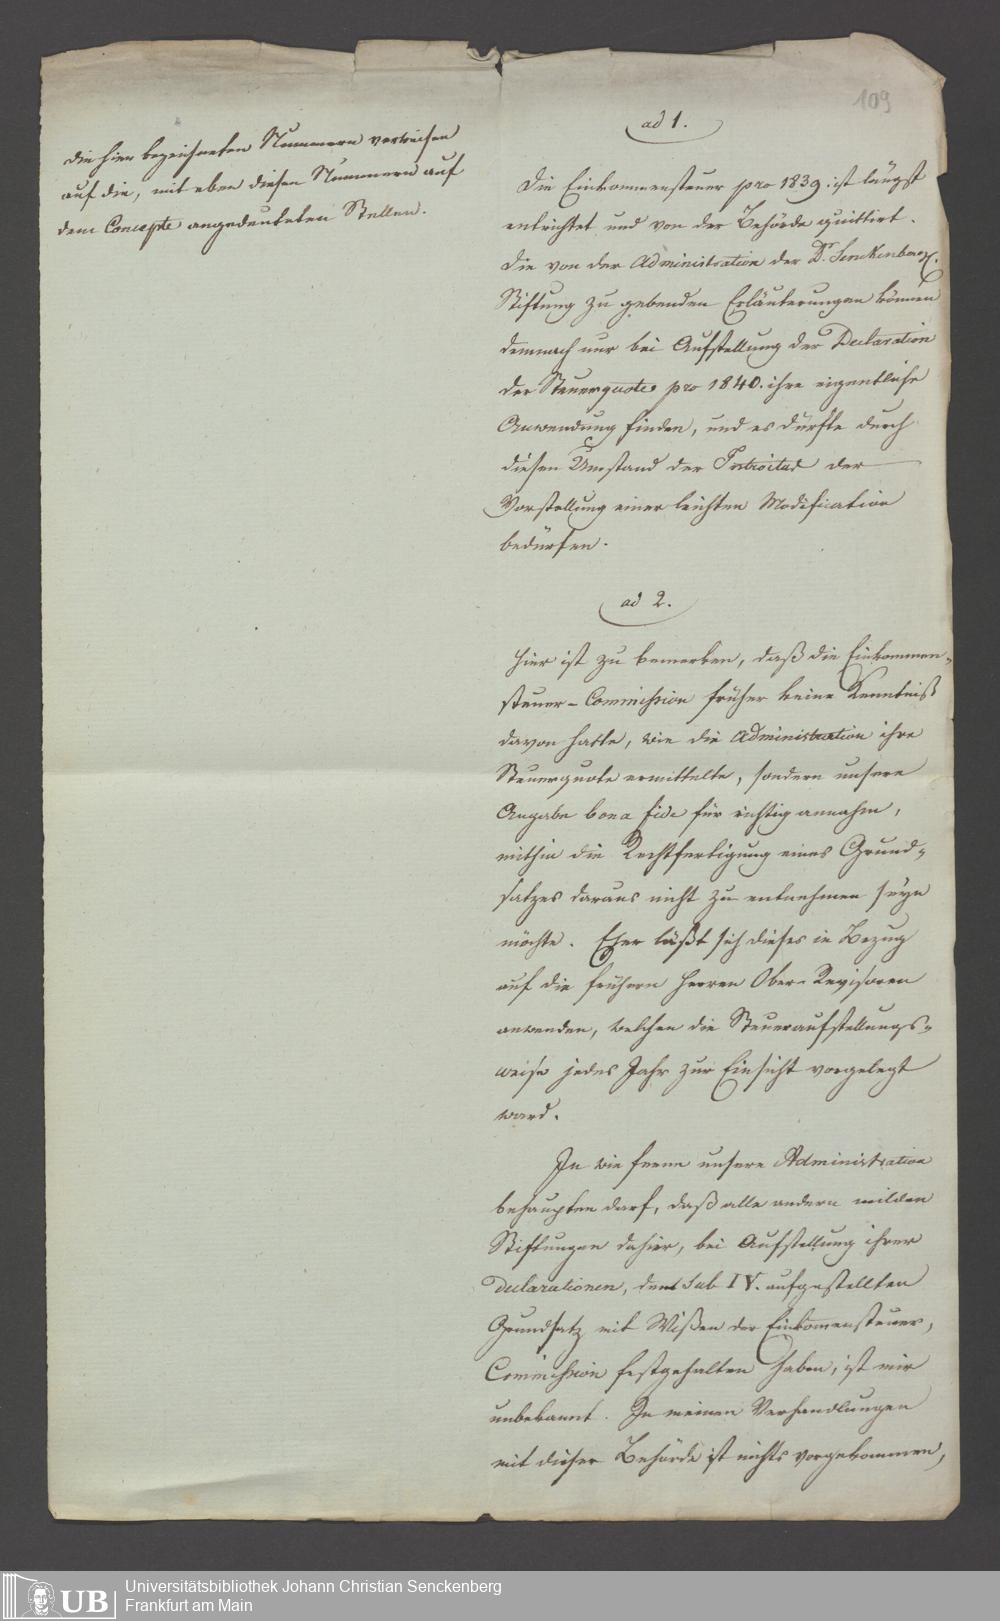 109
die hier bezeichneten Nummern verweisen
auf die, mit eben diesen Nummern auf
dem Concepte angedeuteten Stellen.
ad 1.
Die Einkommensteuer pro 1839. ist längst
entrichtet und von der Behörde quittirt.
Die von der Administration der Dr. Senckenberg.
Stiftung zu gebenden Erläuterungen können
demnach nur bei Aufstellung der Declaration
der Steuerquote pro 1840. ihre eigentliche
Anwendung finden, und es dürfte durch
diesen Umstand der Introitus der
Vorstellung einer leichten Modification
bedürfen.
ad 2.
Hier ist zu bemerken, daß die Einkommen-
steuer-Commission früher keine Kenntniß
davon hatte, wie die Administration ihre
Steuerquote ermittelte, sondern unsere
Angabe bona fide für richtig annahm,
mithin die Rechtfertigung eines Grund-
satzes daraus nicht zu entnehmen seyn
möchte. Eher läßt sich dieses in Bezug
auf die frühern Herren Ober-Revisoren
anwenden, welchen die Steueraufstellungs-
weise jedes Jahr zur Einsicht vorgelegt
ward.
In wie fern unsere Administration
behaupten darf, daß alle andern milden
Stiftungen dahier, bei Aufstellung ihrer
Declarationen, den sub IV. aufgestellten
Grundsatz mit Wißen der Einkommensteuer,
Commission festgehalten haben, ist mir
unbekannt. In meinen Verhandlungen
mit dieser Behörde ist nichts vorgekommen,
UB
Universitätsbibliothek Johann Christian Senckenberg
Frankfurt am Main